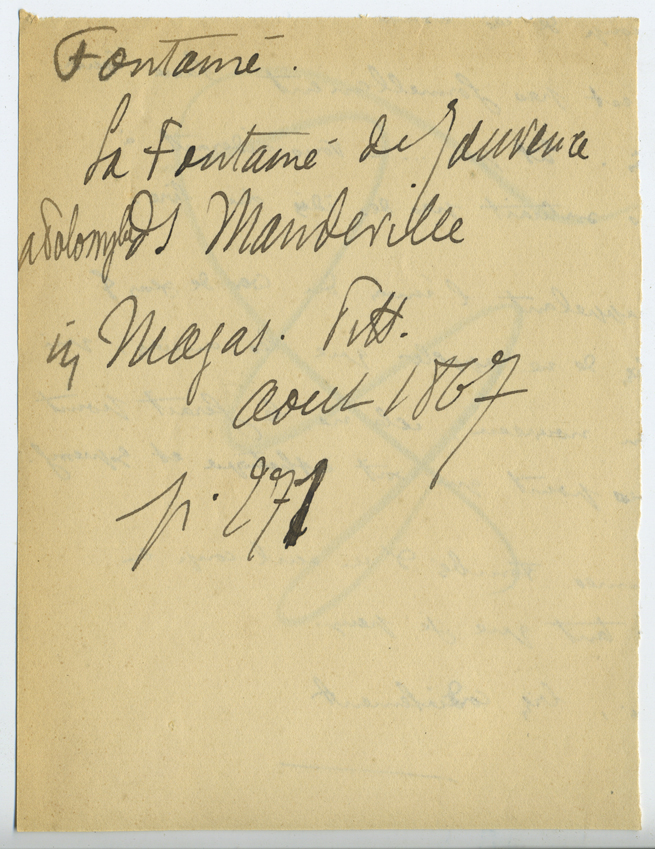 Fontaine.
La Fontaine de Jouvence
a Polombe ds Mandeville
in Magas. Pitt.
aout 1867
p. 271